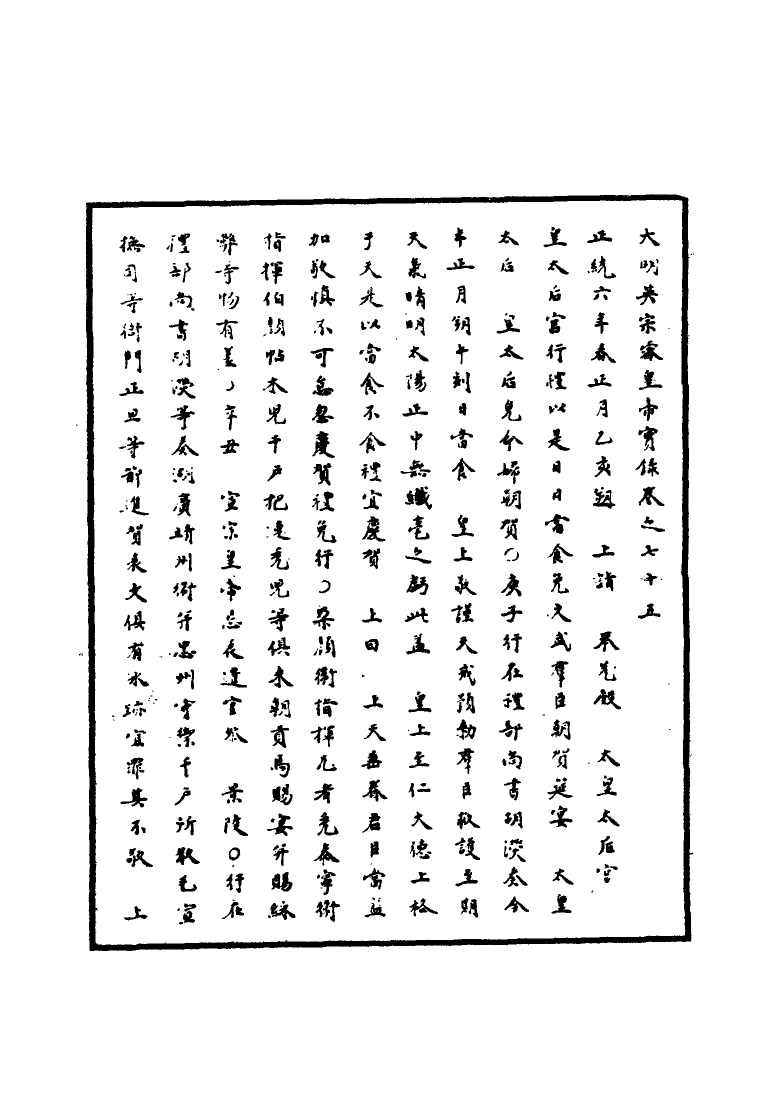 大明英宗睿皇帝實錄卷之七十五
正統六年春正月乙亥朔　上詣　奉先殿　太皇太后宮
皇太后宮行禮以是日日當食免文武羣臣朝賀筵宴　太皇
太后　皇太后免命婦朝賀○庚子行在禮部尚書胡濙奏今
年正月朔午刻日當食　皇上敬謹天戒預勑羣臣救護至期
天氣晴明太陽正中無纖毫之虧此蓋　皇上至仁大德上格
于天是以當食不食禮宜慶賀　上曰　上天垂眷君臣當益
加敬慎不可怠忽慶賀禮免行○朵顏衛指揮兀者禿泰寧衛
指揮伯顏帖木兒千戶把速禿兒等俱来朝貢馬賜宴并賜綵
幣等物有差○辛丑　宣宗皇帝忌辰遣官祭　景陵○行在
禮部尚書胡濙等奏湖廣靖州衛并忠州守禦千戶所散毛宣
撫司等衙門正旦等節進賀表文俱有水跡宜罪其不敬　上